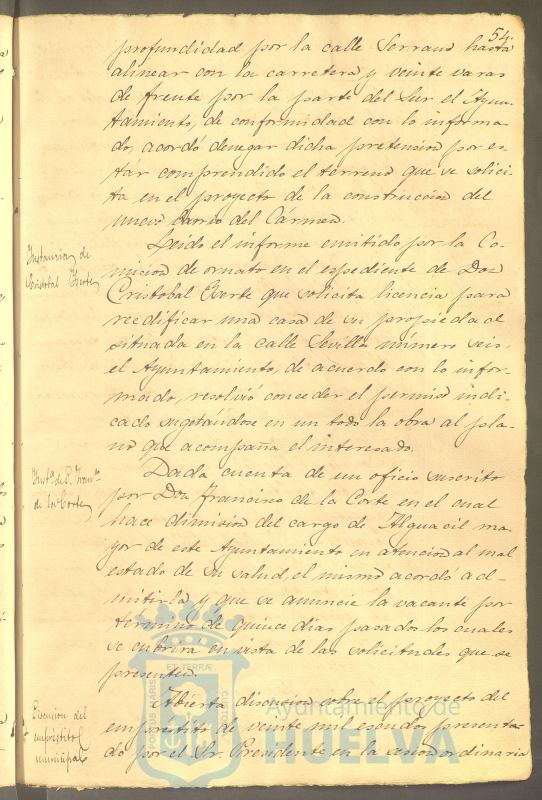 54.
profundidad por la calle Serrano hasta
alinear con la carretera, y veinte varas
de frente por la parte del Sur el Ayun-
tamiento, de conformidad con lo informa
do, acordó denegar dicha pretension por es-
tár comprendido el terreno que se solici-
ta en el proyecto de la construccion del
nuevo barrio del Cármen.
Instancia de
Cristobal
Leido el informe emitido por la Co-
mision de ornato en el espediente de Don
Cristobal que solicita licencia para
reedificar una casa de su propiedad
situada en la calle Sevilla número seis,
el Ayuntamiento, de acuerdo con lo infor-
mado, resolvió conceder el permiso indi-
cado sugetándose en un todo la obra al pla-
no que acompaña el interesado.
Inst.a de D. Fran.co
de la Corte
Dada cuenta de un oficio suscrito
por Don Francisco de la Corte en el cual
hace dimision del cargo de Alguacil ma-
yor de este Ayuntamiento en atencion al mal
estado de su salud, el mismo acordó ad-
mitirla y que se anuncie la vacante por
término de quince dias pasados los cuales
se cubrirá en vista de las solicitudes que se
presenten.
Discusion del
empréstito
municipal
Abierta discusion sobre el proyecto del
empréstito de veinte mil escudos presenta-
do por el Sr. Presidente en la sesion ordinaria
Ayuntamiento de
HUELVA